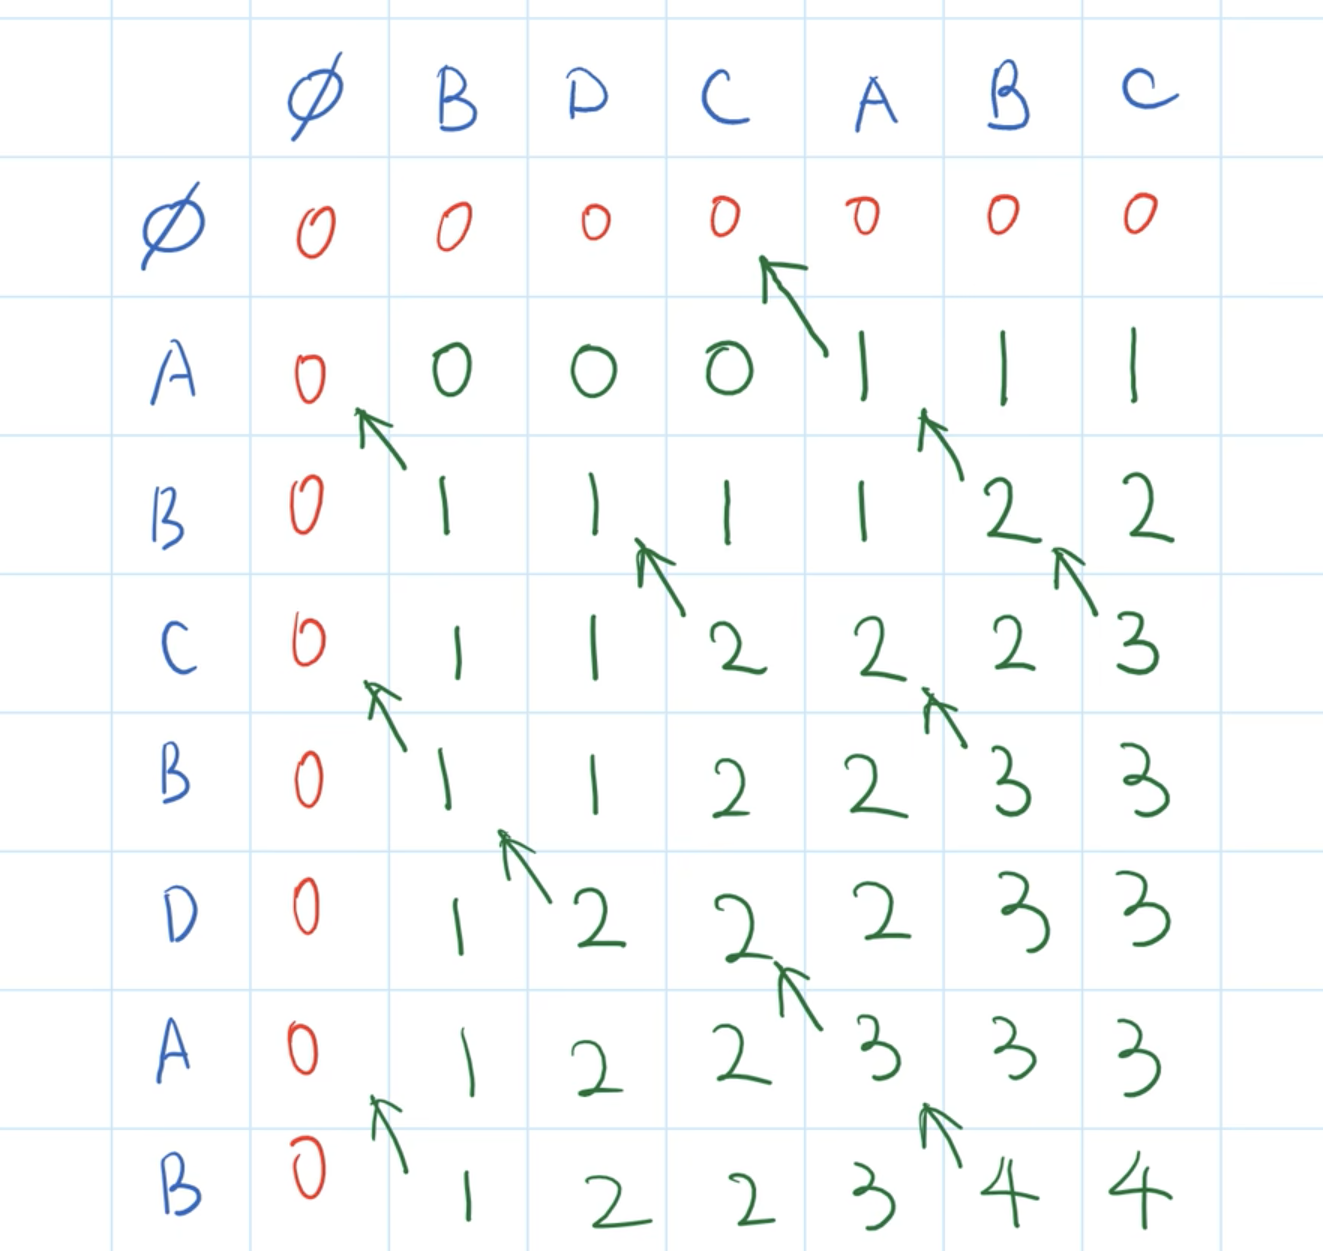 Ø B D C A B C
Ø 0 0 0 0 0 0 0
A 0 0 0 0 1 1 1
B 0 1 1 1 1 2 2
C 0 1 1 2 2 2 3
B 0 1 1 2 2 3 3
D 0 1 2 2 2 3 3
A 0 1 2 2 3 3 3
B 0 1 2 2 3 4 4